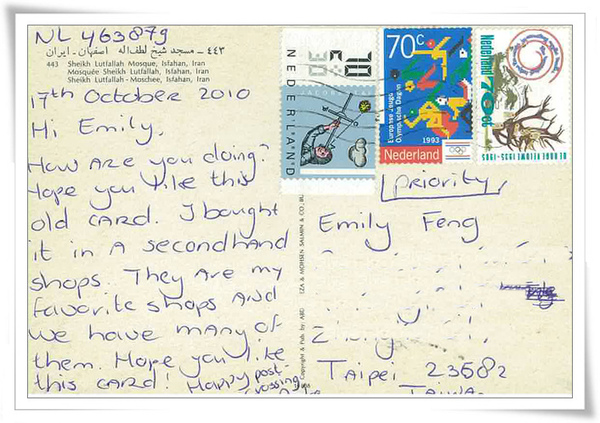 NL 463879
٤٤٣ - مسجد شیخ لطف‌اله اصفهان - ایران
443 Sheikh Lutfallah Mosque, Isfahan, Iran
Mosquée Sheikh Lutfallah, Isfahan, Iran
Sheikh Lutfallah - Moschee, Isfahan, Iran
17th October 2010
Hi Emily,
How are you doing?
Hope you like this
old card. I bought
it in a secondhand
shops. They are my
favorite shops and
we have many of
them. Hope you like
this card! Happy post-
crossing
Copyright & Pub. by ABU
EZA & MOHSEN SALMIN & CO.
NEDERLAND
70 c
Europese Jeugd
Olympische Dagen
1993
Nederland
Nederland 70 cent
DE HOGE VELUWE 1935-1985
Priority
Emily Feng
Taipei 23582